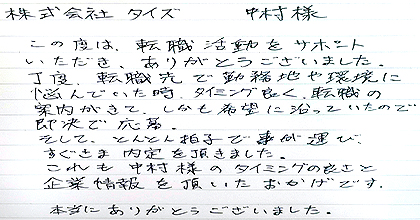 株式会社 タイズ 中村様
この度は、転職活動をサポート
いただき、ありがとうございました。
丁度、転職先で勤務地や環境に
悩んでいた時、タイミング良く、転職の
案内がきて、しかも希望に沿っていたので
即決で応募。
そして、とんとん拍子で事が運び、
すぐさま内定を頂きました。
これも中村様のタイミングの良さと
企業情報を頂いたおかげです。
本当にありがとうございました。